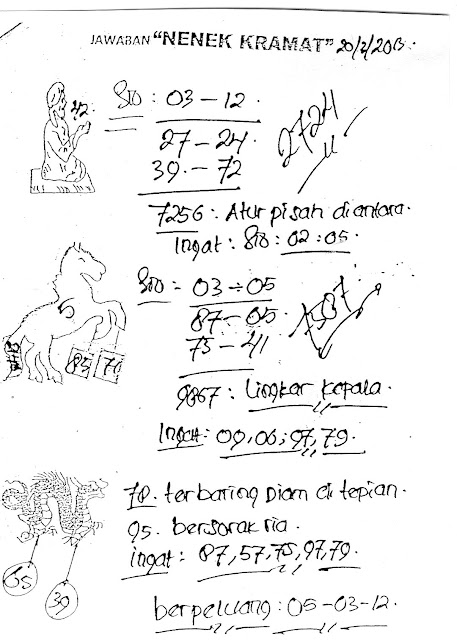 JAWABAN "NENEK KRAMAT" 20/2/2013.
42.
SIO : 03 - 12.
27 - 24.
39. - 72
2724
7256 : Atur pisah diantara.
Ingat : SIO : 02 : 05.
SIO = 03 ÷ 05
87 - 05.
73 - 41
7307
5
85 71
9867 : Lingkar kepala.
Ingat: 09,06,97,79.
78. terbaring Diam di tepian.
95. bersorak ria.
ingat : 87,57,75,97,79.
65
39
berpeluang : 05-03-12.